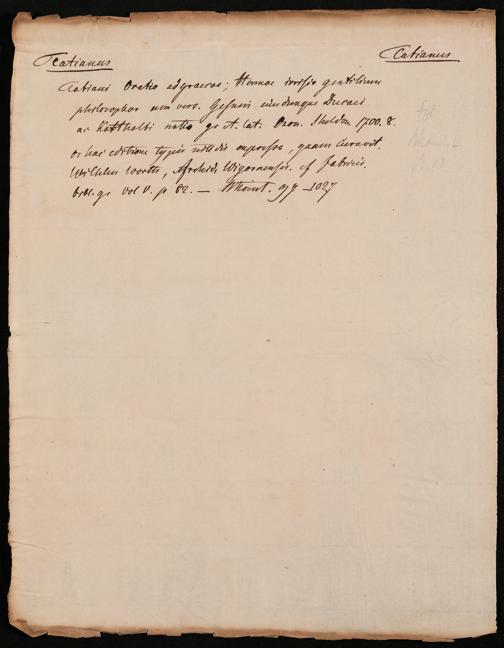 Tatianus
Tatianus
Tatiani Oratio ad graecos; Hermae irrisio gentilium
philosophor. cum vers. Gesneri eiusdemque Ducaei
ac Kortholti notis gr. et. lat. Oxon. Sheldon 1700. 8.
ex hac editione typis nitidis expressa, quam curavit
Wilhelm Worth, Archid. Wigorniensis. cf fabricii
bibl. gr vol V. p 82. —